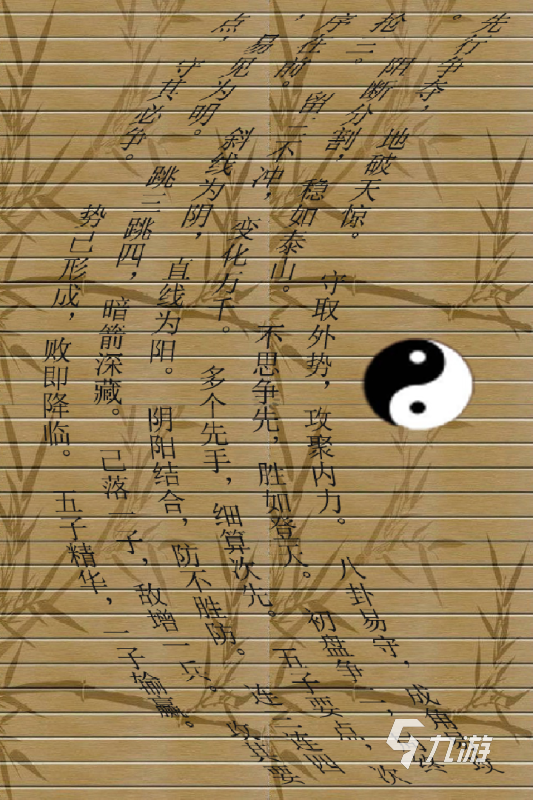 先行争夺，地破天惊。守取外势，攻聚内力。八卦易守，成角易攻
。阻断分割，稳如泰山。不思争先，胜如登天。初盘争二，
抢三。留三不冲，变化万千。多个先手，细算次先。五子要点，次
序在前。斜线为阴，直线为阳。阴阳结合，防不胜防。连三连四
，易见为明。跳三跳四，暗箭深藏。己落一子，敌增一兵。攻其要
点，守其必争。势已形成，败即降临。五子精华，一子输赢。
九游